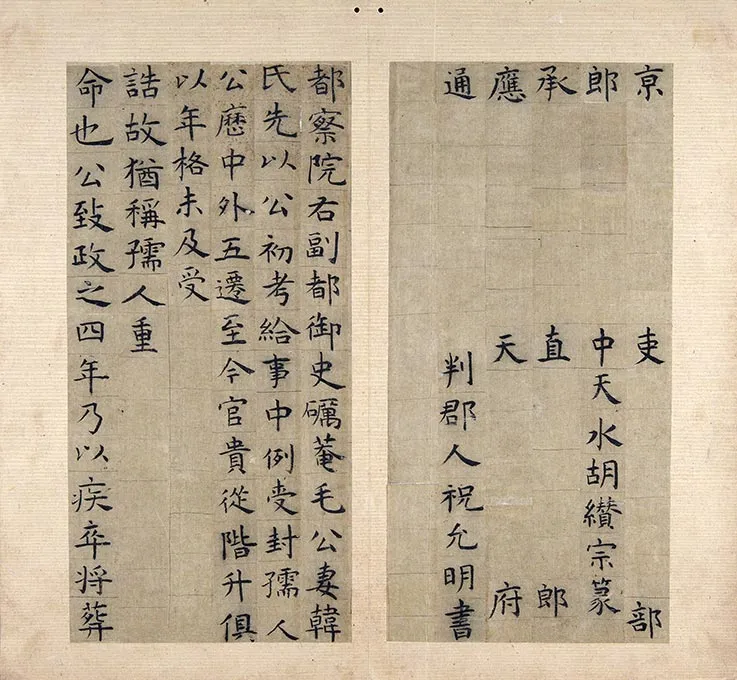 京吏部
郎中天水胡纘宗篆
承直郎
應天府
通判郡人祝允明書
都察院右副都御史礪菴毛公妻韓
氏先以公初考給事中例受封孺人
公歷中外五遷至今官貴從階升俱
以年格未及受
誥故猶稱孺人重
命也公致政之四年乃以疾卒将葬